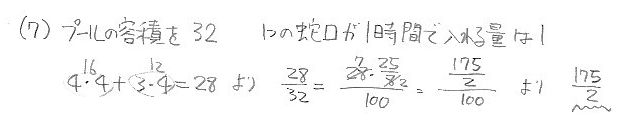 (7) プールの容積を 32 1つの蛇口が1時間で入れる量は1
4・4+3・4=28 より 28/32 = (7 28・25 82)/100 = (175/2)/100 より 175/2
16 12